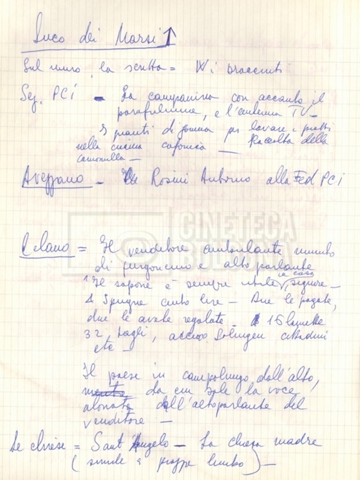 Luco dei Marsi ↑
Sul muro, la scritta = W i braccianti
Seg. PCI - La campanina con accanto il
parafulmine, e l'antenna TV -
3 pianti di donna per lavare i piatti
nella cucina cafonica - Raccolta della
camomilla -
Avezzano - Rosini Antonio alla Fed PCI
CINETECA
= Il venditore ambulante munito
di furgoncino e altoparlante
Il sapone è sempre utile, signore -
in casa
4 spugne cento lire - Due le pagate,
due le avete regalate - 16 lamette
32 tagli, acciaio Solingen cittadini
etc -
Il paese in campolungo, dall'alto,
da cui sale la voce
dell'altoparlante del
venditore -
Le chiese = Sant'Angelo - La chiesa madre
(simile a limbo) -